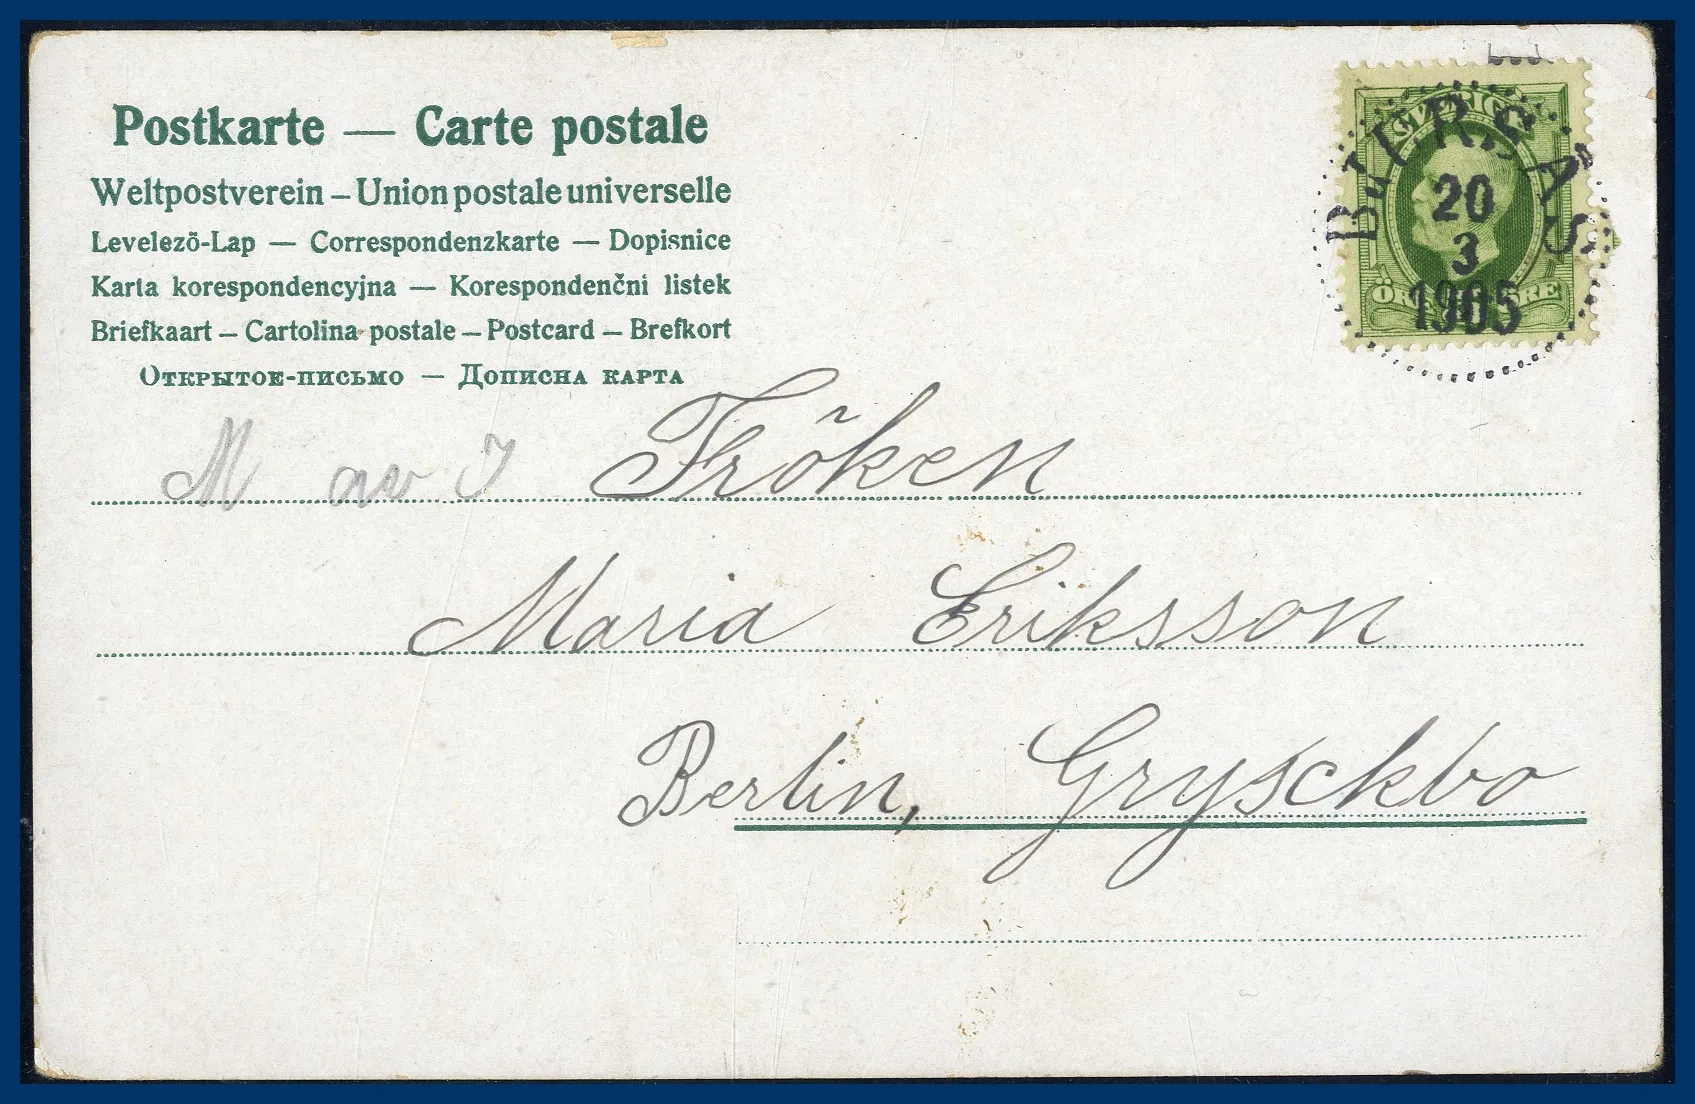 Postkarte — Carte postale
Weltpostverein – Union postale universelle
Levelező-Lap — Correspondenzkarte — Dopisnice
Karta korespondencyjna — Korespondenčni listek
Briefkaart – Cartolina postale – Postcard – Brefkort
Открытое-письмо — Дописна карта
BJURSÅS
20
3
1905
SVERIGE
M av J Fröken
Maria Eriksson
Berlin, Grysckbo